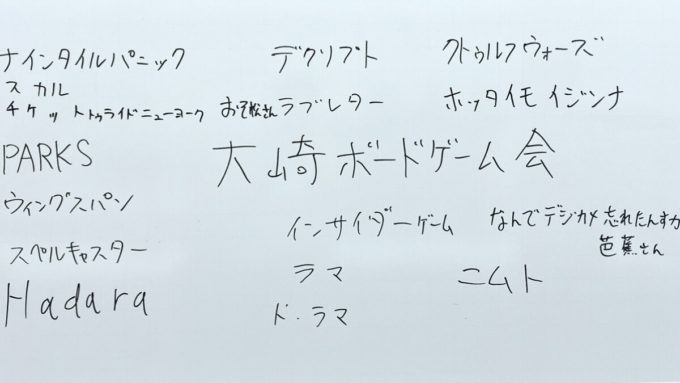 ナインタイルパニック
デクリプト
クトゥルフウォーズ
スカル
チケットトゥライドニューヨーク
おそ松さんラブレター
ホッタイモイジンナ
PARKS
大崎ボードゲーム会
ウィングスパン
インサイダーゲーム
なんでデジカメ忘れたんすか
芭蕉さん
スペルキャスター
ラマ
ニムト
Hadara
ド・ラマ